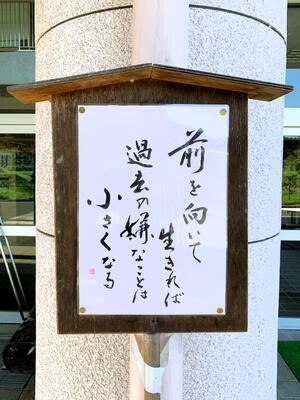 前を向いて
生きれば
過去の嫌なことは
小さくなる